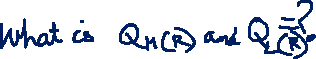 What is Q_H(R) and Q_L(R)=?